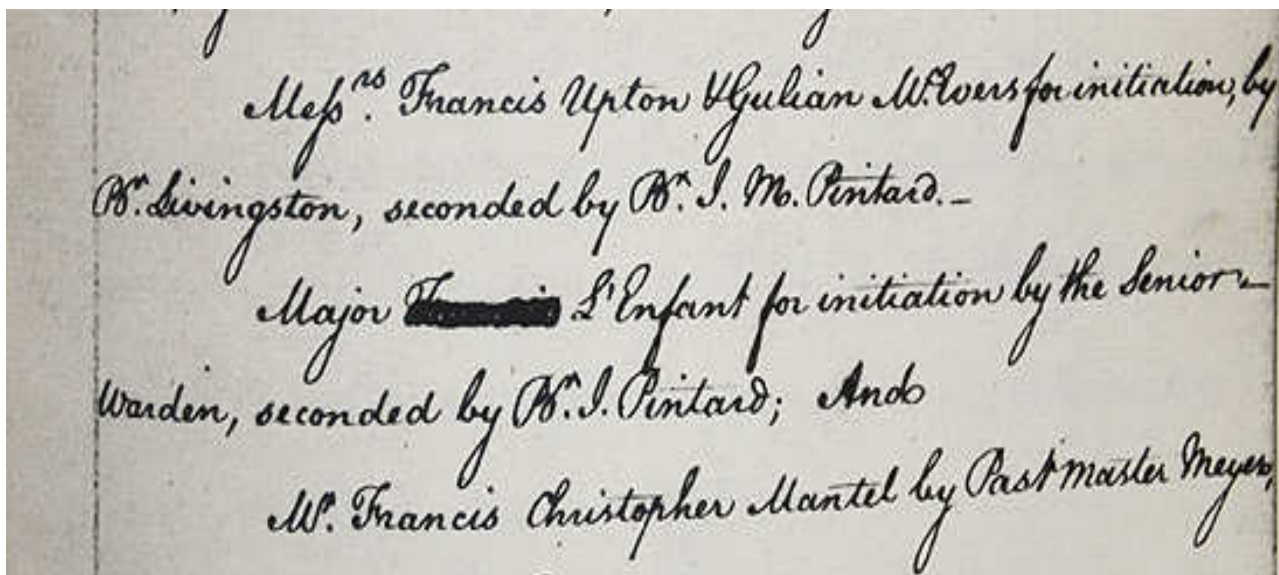 Messrs. Francis Upton & Gulian McEvers for initiation, by
Br. Livingston, seconded by Br. J. M. Pintard.-
Major L'Enfant for initiation by the Senior
Warden, seconded by Br. J. Pintard; And
Mr. Francis Christopher Mantel by Past Master Meyer,